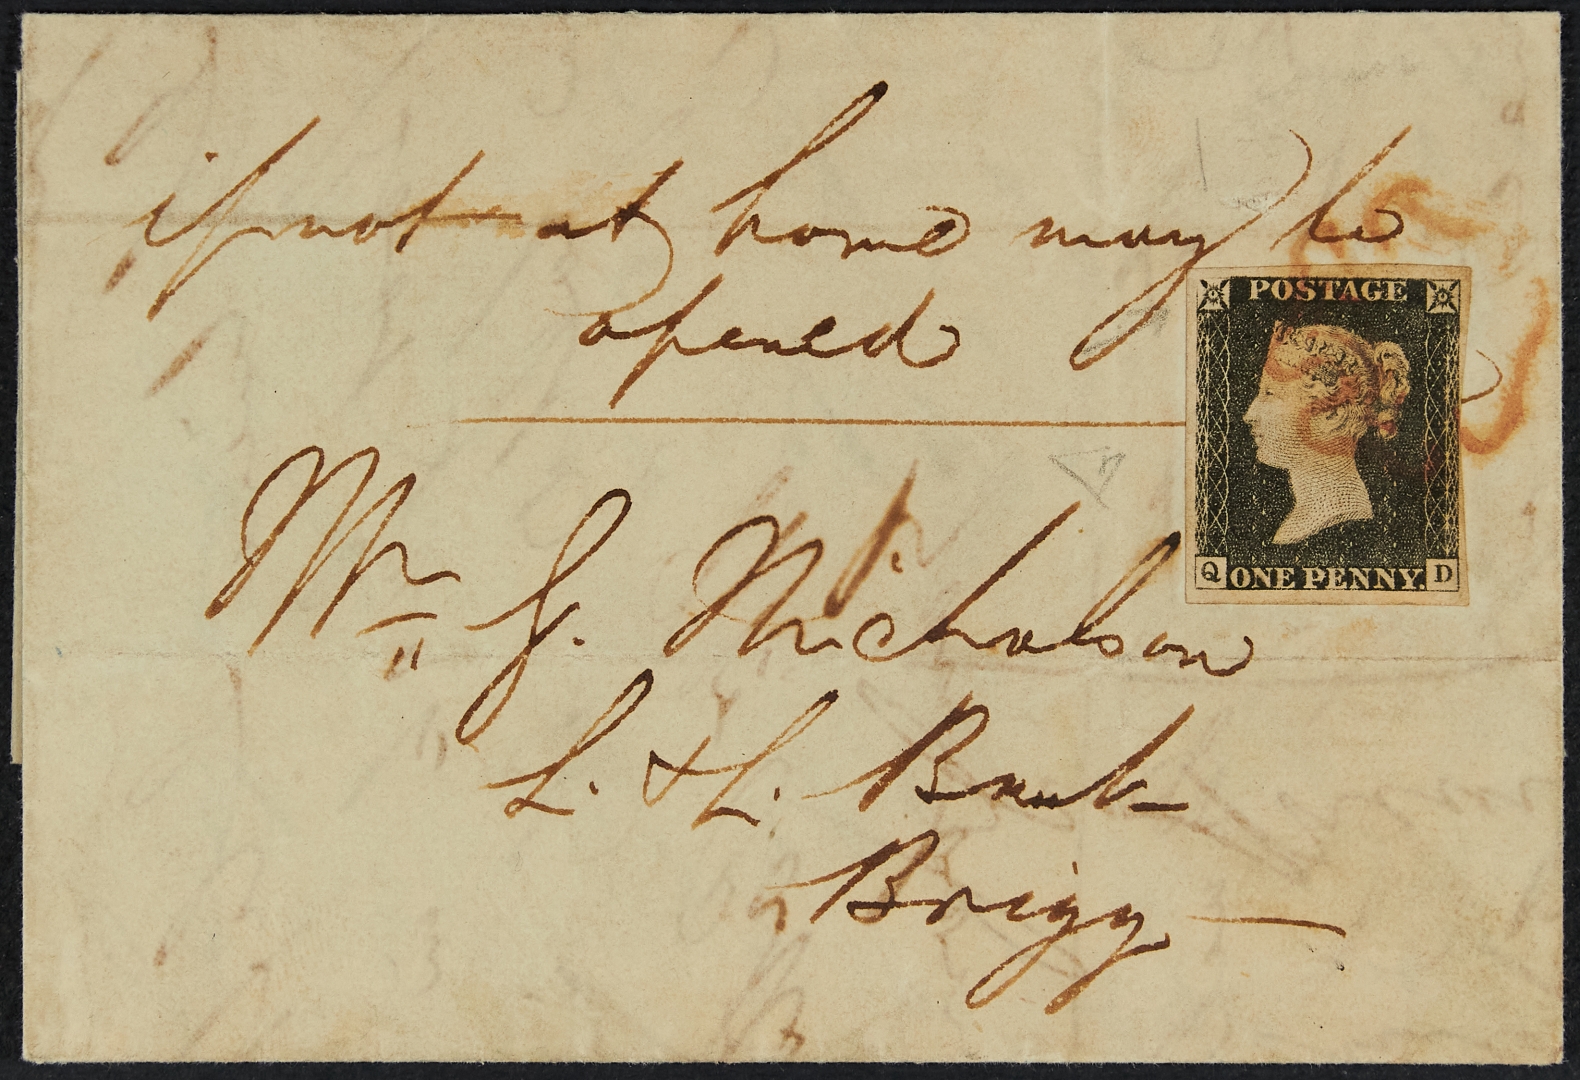 if not at home may be
opened
POSTAGE
Mr J. Nicholson
Q ONE PENNY. D
L. & L. Bank
Brigg